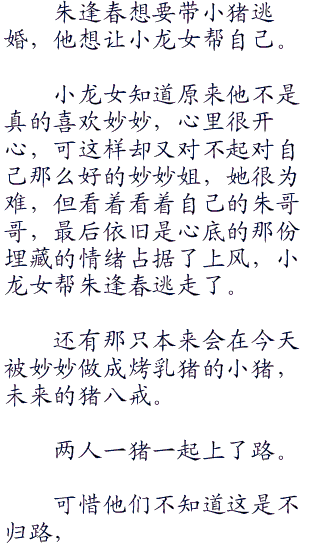 朱逢春想要带小猪逃
婚，他想让小龙女帮自己。
小龙女知道原来他不是
真的喜欢妙妙，心里很开
心，可这样却又对不起对自
己那么好的妙妙姐，她很为
难，但看着看着自己的朱哥
哥，最后依旧是心底的那份
埋藏的情绪占据了上风，小
龙女帮朱逢春逃走了。
还有那只本来会在今天
被妙妙做成烤乳猪的小猪，
未来的猪八戒。
两人一猪一起上了路。
可惜他们不知道这是不
归路，